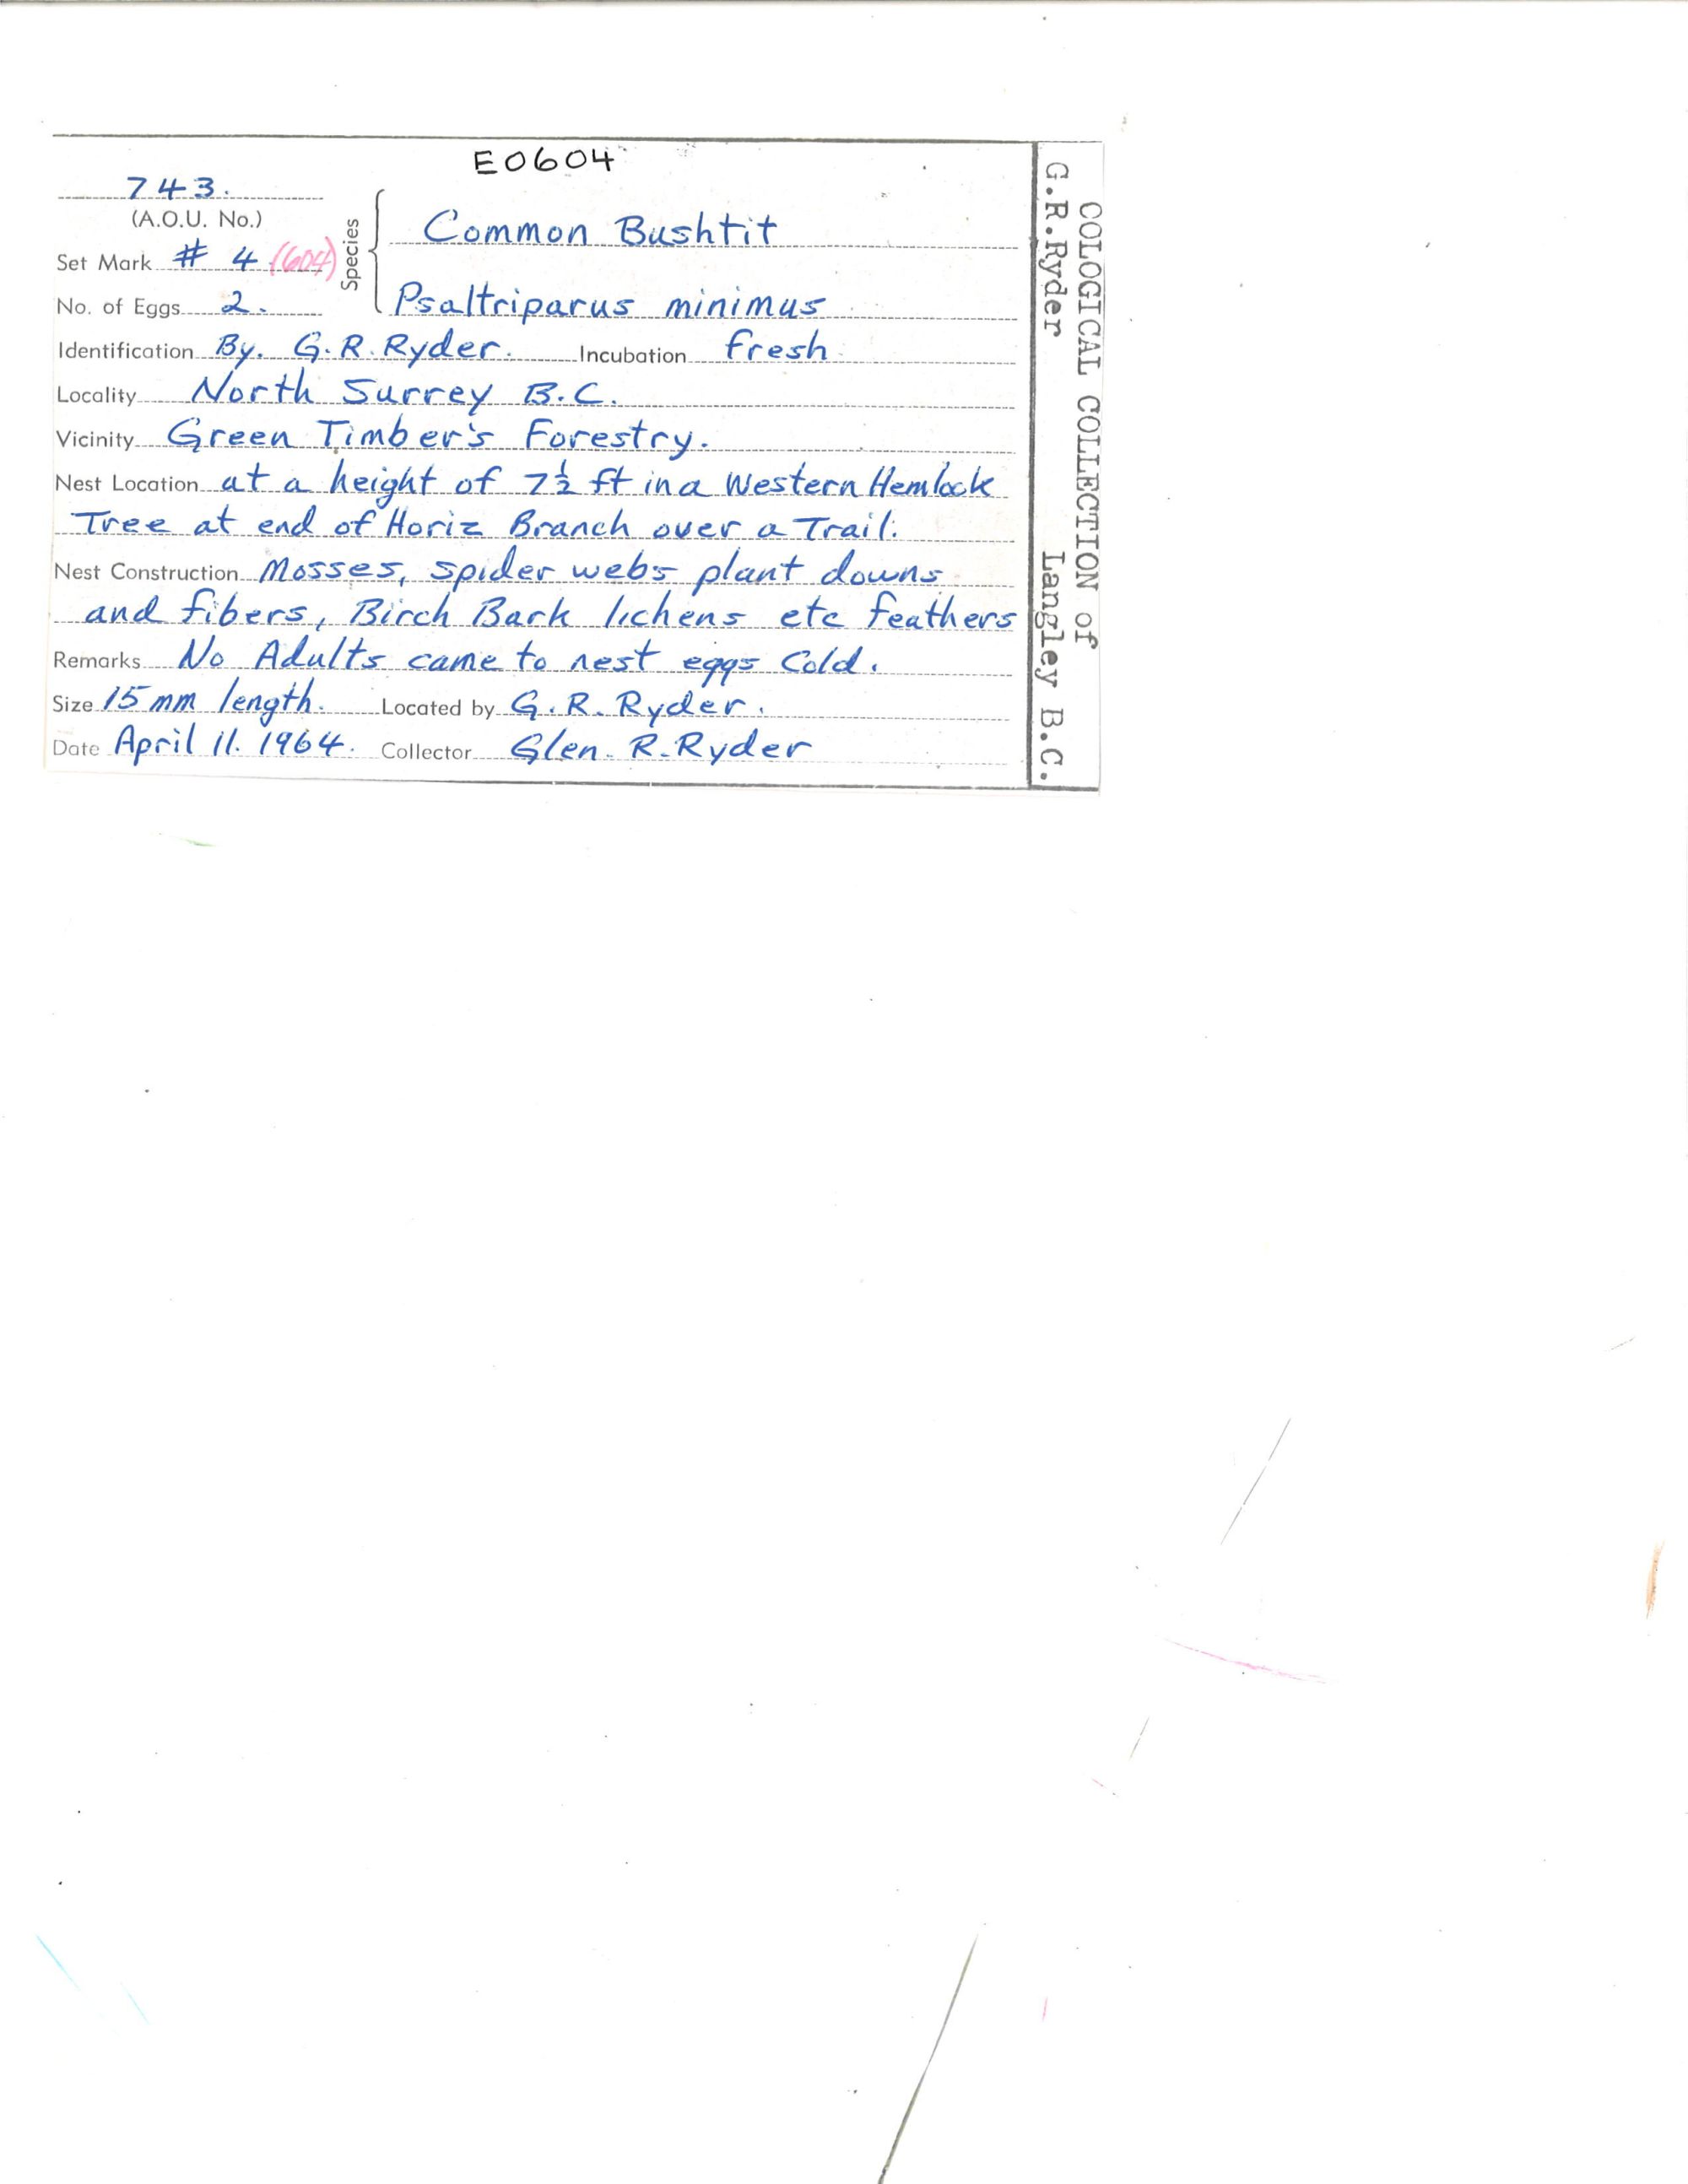 E0604
743.
(A.O.U. No.)
Species
Common Bushtit
Set Mark # 4 (604)
Psaltriparus minimus
No. of Eggs 2.
Identification By. G.R.Ryder. Incubation fresh
Locality North Surrey B.C.
Vicinity Green Timber's Forestry.
Nest Location at a height of 7½ ft in a Western Hemlock
Tree at end of Horiz Branch over a Trail.
Nest Construction Mosses, spider webs plant downs
and fibers, Birch Bark lichens etc feathers
Remarks No Adults came to nest eggs Cold.
Size 15 mm length. Located by G.R.Ryder.
Date April 11. 1964. Collector Glen. R.Ryder
OOLOGICAL COLLECTION of
G.R.Ryder Langley B.C.